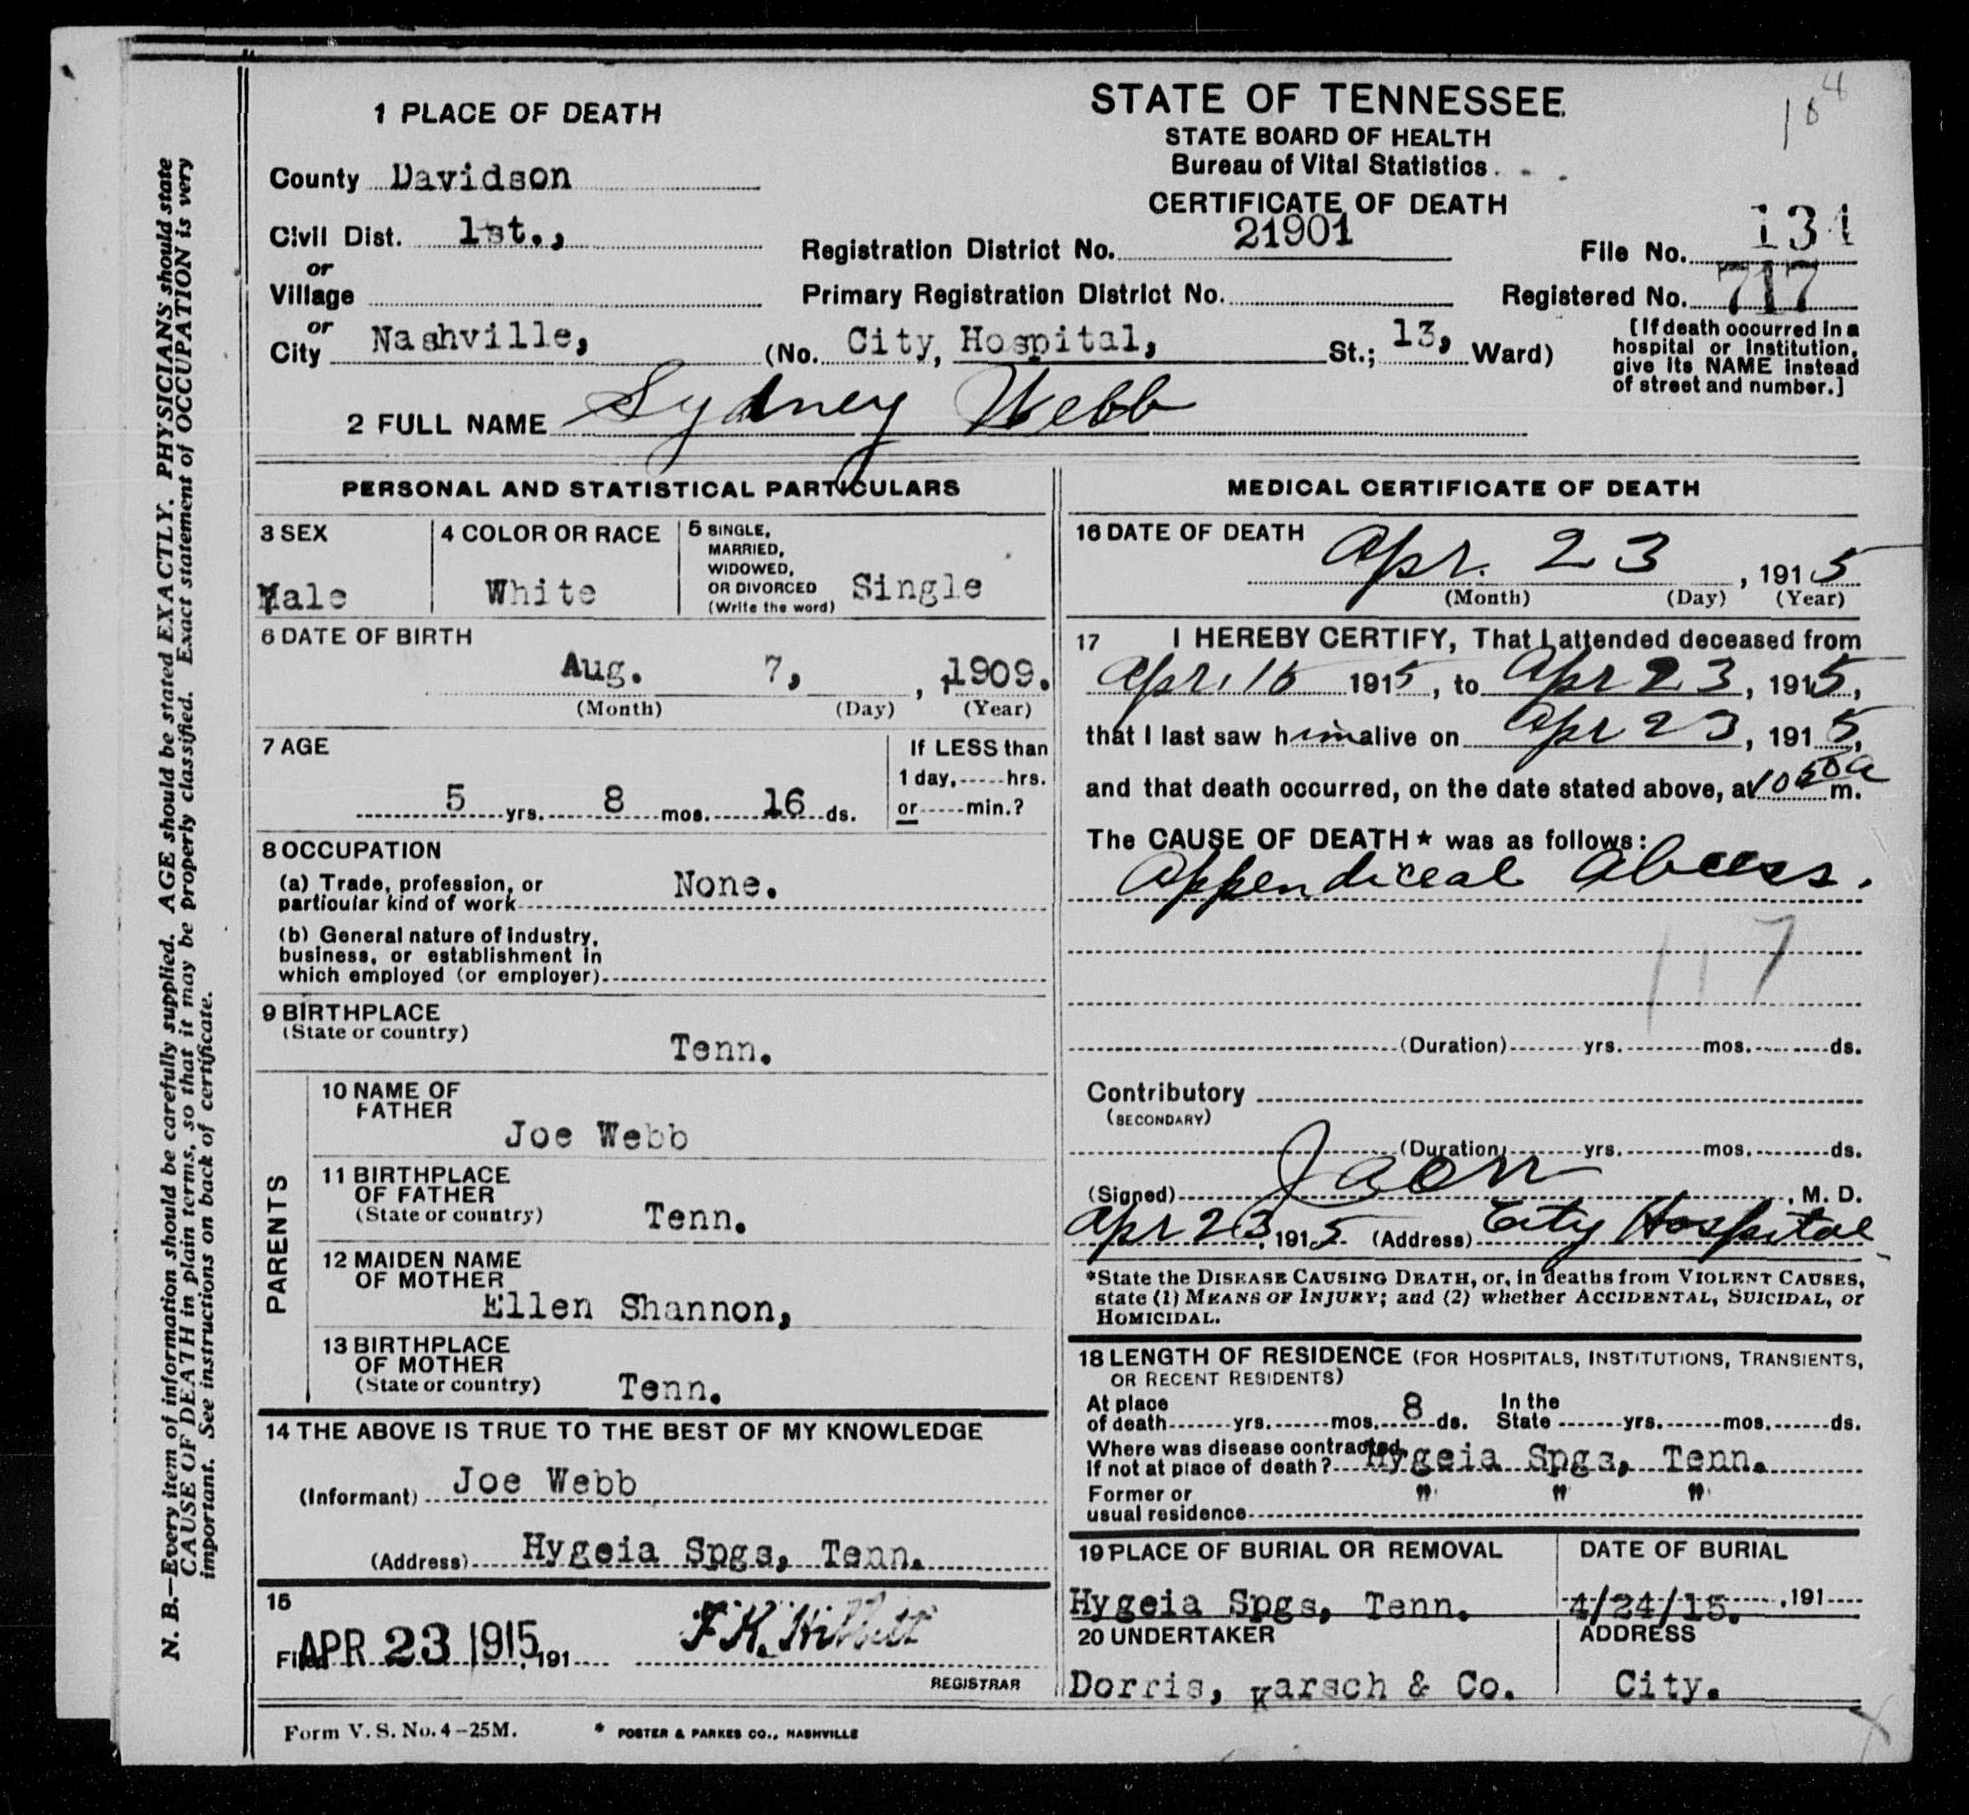 1 PLACE OF DEATH
County Davidson
Civil Dist. 1st.,
or
Village
or
City Nashville, (No. City, Hospital, St.; 13, Ward)
STATE OF TENNESSEE
STATE BOARD OF HEALTH
Bureau of Vital Statistics
CERTIFICATE OF DEATH
Registration District No. 21901
File No. 134
Primary Registration District No.
Registered No. 717
[If death occurred in a
hospital or institution,
give its NAME instead
of street and number.]
2 FULL NAME Sydney Webb
PERSONAL AND STATISTICAL PARTICULARS
3 SEX
Male
4 COLOR OR RACE
White
5 SINGLE,
MARRIED,
WIDOWED,
OR DIVORCED
(Write the word) Single
6 DATE OF BIRTH
Aug. 7, , 1909.
(Month) (Day) (Year)
7 AGE
5 yrs. 8 mos. 16 ds.
If LESS than
1 day, hrs.
or min.?
8 OCCUPATION
(a) Trade, profession, or
particular kind of work None.
(b) General nature of industry,
business, or establishment in
which employed (or employer)
9 BIRTHPLACE
(State or country)
Tenn.
PARENTS
10 NAME OF
FATHER
Joe Webb
11 BIRTHPLACE
OF FATHER
(State or country) Tenn.
12 MAIDEN NAME
OF MOTHER
Ellen Shannon,
13 BIRTHPLACE
OF MOTHER
(State or country) Tenn.
14 THE ABOVE IS TRUE TO THE BEST OF MY KNOWLEDGE
(Informant) Joe Webb
(Address) Hygeia Spgs, Tenn.
15
Filed APR 23 1915, 191
REGISTRAR
MEDICAL CERTIFICATE OF DEATH
16 DATE OF DEATH
Apr. 23, 1915
(Month) (Day) (Year)
17 I HEREBY CERTIFY, That I attended deceased from
Apr. 15 1915, to Apr 23, 1915,
that I last saw him alive on Apr 23, 1915,
and that death occurred, on the date stated above, at 10 50 a m.
The CAUSE OF DEATH* was as follows:
Appendiceal Abcess.
117
(Duration) yrs. mos. ds.
Contributory
(SECONDARY)
(Duration) yrs. mos. ds.
(Signed) , M. D.
Apr 23, 1915 (Address) City Hospital
*State the DISEASE CAUSING DEATH, or, in deaths from VIOLENT CAUSES,
state (1) MEANS OF INJURY; and (2) whether ACCIDENTAL, SUICIDAL, or
HOMICIDAL.
18 LENGTH OF RESIDENCE (FOR HOSPITALS, INSTITUTIONS, TRANSIENTS,
OR RECENT RESIDENTS)
At place
of death yrs. mos. 8 ds.
In the
State yrs. mos. ds.
Where was disease contracted,
If not at place of death? Hygeia Spgs, Tenn.
Former or
usual residence " " "
19 PLACE OF BURIAL OR REMOVAL
Hygeia Spgs, Tenn.
DATE OF BURIAL
4/24/15. , 191
20 UNDERTAKER
Dorris, Karsch & Co.
ADDRESS
City.
N. B.—Every item of information should be carefully supplied. AGE should be stated EXACTLY. PHYSICIANS should state
CAUSE OF DEATH in plain terms, so that it may be properly classified. Exact statement of OCCUPATION is very
important. See instructions on back of certificate.
Form V. S. No. 4—25M.
* FOSTER & PARKES CO., NASHVILLE